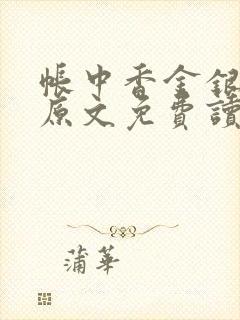 帳中香金銀
原文免費讀
蒲華